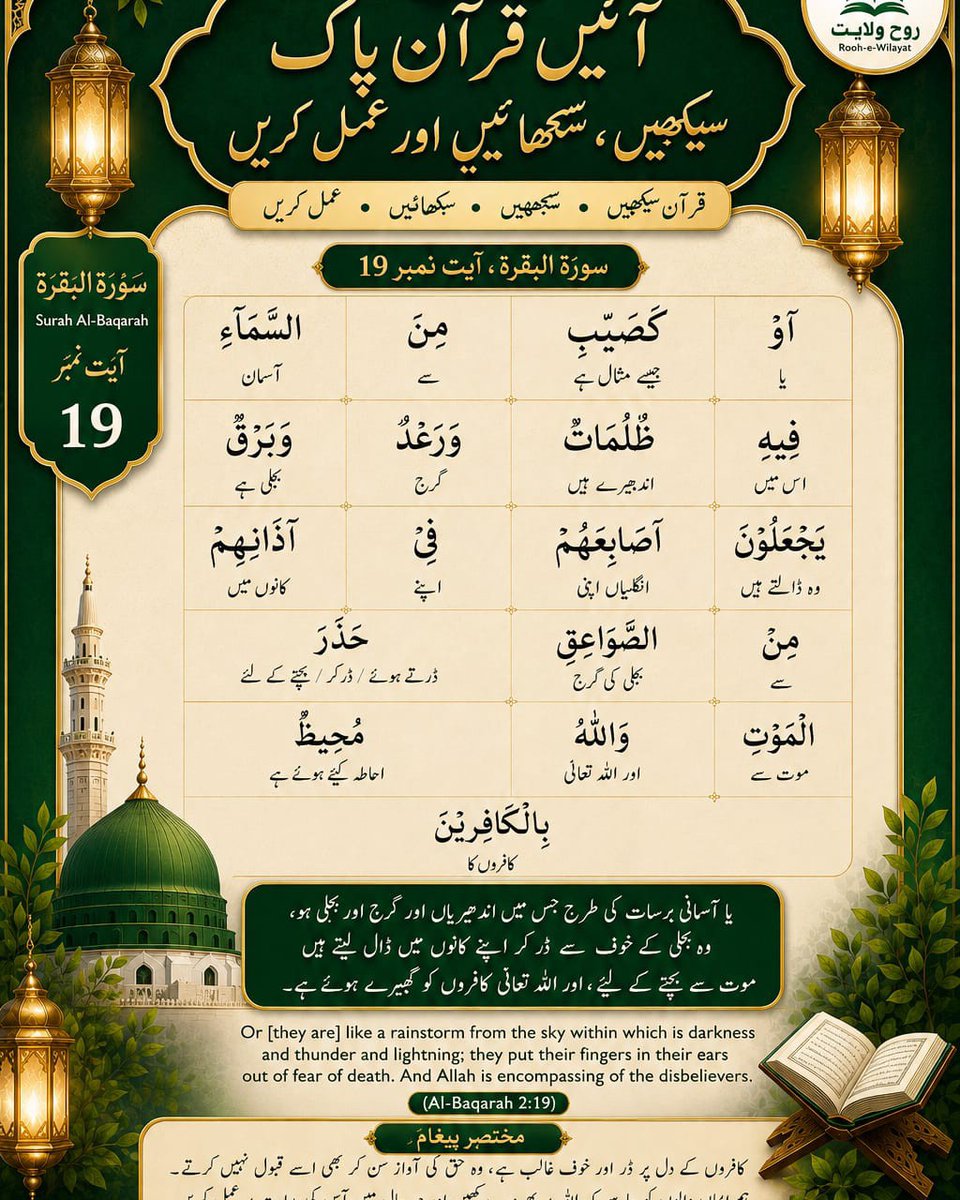 آئیں قرآن پاک
سیکھیں، سکھائیں اور عمل کریں
روح ولایت
Rooh-e-Wilayat
قرآن سیکھیں • سمجھیں • سکھائیں • عمل کریں
سَوْرَة البَقرَة
Surah Al-Baqarah
آیَت نمبَر
19
سورَة البقرة ، آیت نمبر 19
آوْ كَصَيّبِ مِنَ السَّمَآءِ
یا جیسے مثال ہے سے آسمان
فِيهِ ظُلُمَاتٌ وَرَعْدٌ وَبَرْقٌ
اس میں اندھیرے ہیں گرج بجلی ہے
يَجْعَلُوْنَ آصَابِعَهُمْ فِيْ آذَانِهِمْ
وہ ڈالتے ہیں انگلیاں اپنی اپنے کانوں میں
مِنْ الصَّوَاعِقِ حَذَرَ
سے بجلی کی گرج ڈرتے ہوئے / ڈر کر / بچنے کے لئے
الْمَوْتِ وَاللهُ مُحِيظٌ
موت سے اور اللہ تعالیٰ احاطہ کیئے ہوئے ہے
بِالْكَافِرِيْنَ
کافروں کا
یا آسمانی برسات کی طرح جس میں اندھیریاں اور گرج اور بجلی ہو،
وہ بجلی کے خوف سے ڈر کر اپنے کانوں میں ڈال لیتے ہیں
موت سے بچنے کے لیئے ، اور اللہ تعالیٰ کافروں کو گھیرے ہوئے ہے۔
Or [they are] like a rainstorm from the sky within which is darkness
and thunder and lightning; they put their fingers in their ears
out of fear of death. And Allah is encompassing of the disbelievers.
(Al-Baqarah 2:19)
مختصر پیغام
کافروں کے دل پر ڈر اور خوف غالب ہے، وہ حق کی آواز سن کر بھی اسے قبول نہیں کرتے۔